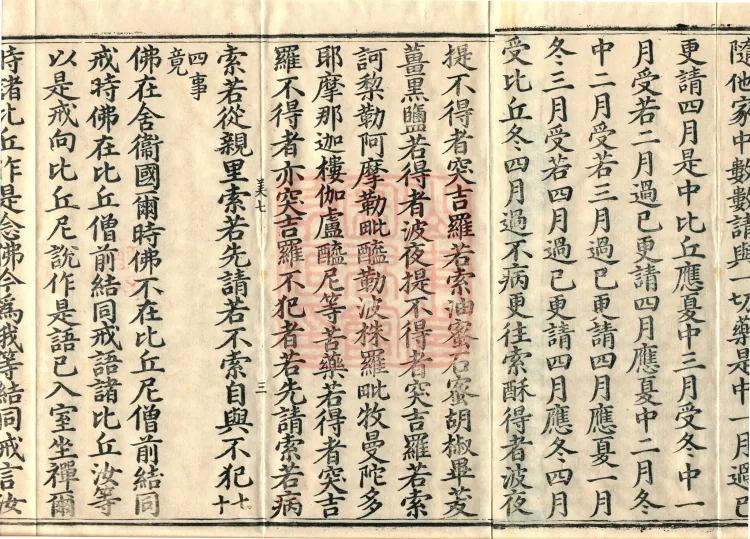 隨他家中數數請與一切藥是中一月過已
更請四月是中比丘應夏中三月受冬中一
月受若二月過已更請四月應夏中二月冬
中二月受若三月過已更請四月應夏一月
冬三月受若四月過已更請四月應冬四月
受比丘冬四月過不病更往索酥得者波夜
提不得者突吉羅若索油蜜石蜜胡椒畢茇
薑黑鹽若得者波夜提不得者突吉羅若索
訶梨勒阿摩勒毗醯勒波株羅毗牧曼陀多
耶摩那迦樓伽盧醯尼等苦藥若得者突吉
羅不得者亦突吉羅不犯者若先請索若病
美七 三
索若從親里索若先請若不索自與不犯七十
四事竟
佛在舍衞國爾時佛不在比丘尼僧前結同
戒時佛在比丘僧前結同戒語諸比丘汝等
以是戒向比丘尼說作是語已入室坐禪爾
時諸比丘作是念佛今爲我等結同戒言汝